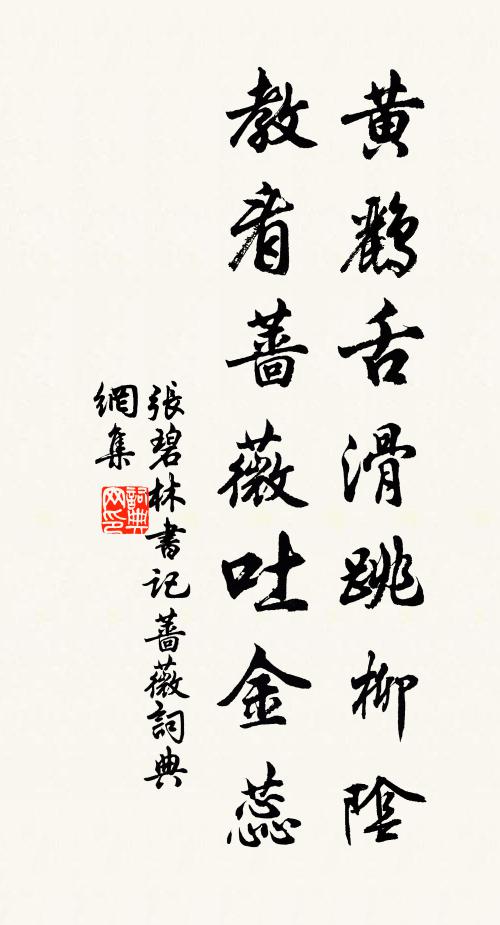 黃鸝舌滑跳柳陰
教看薔薇吐金蕊
張碧林書記薔薇詞典
網集
詞典
网印